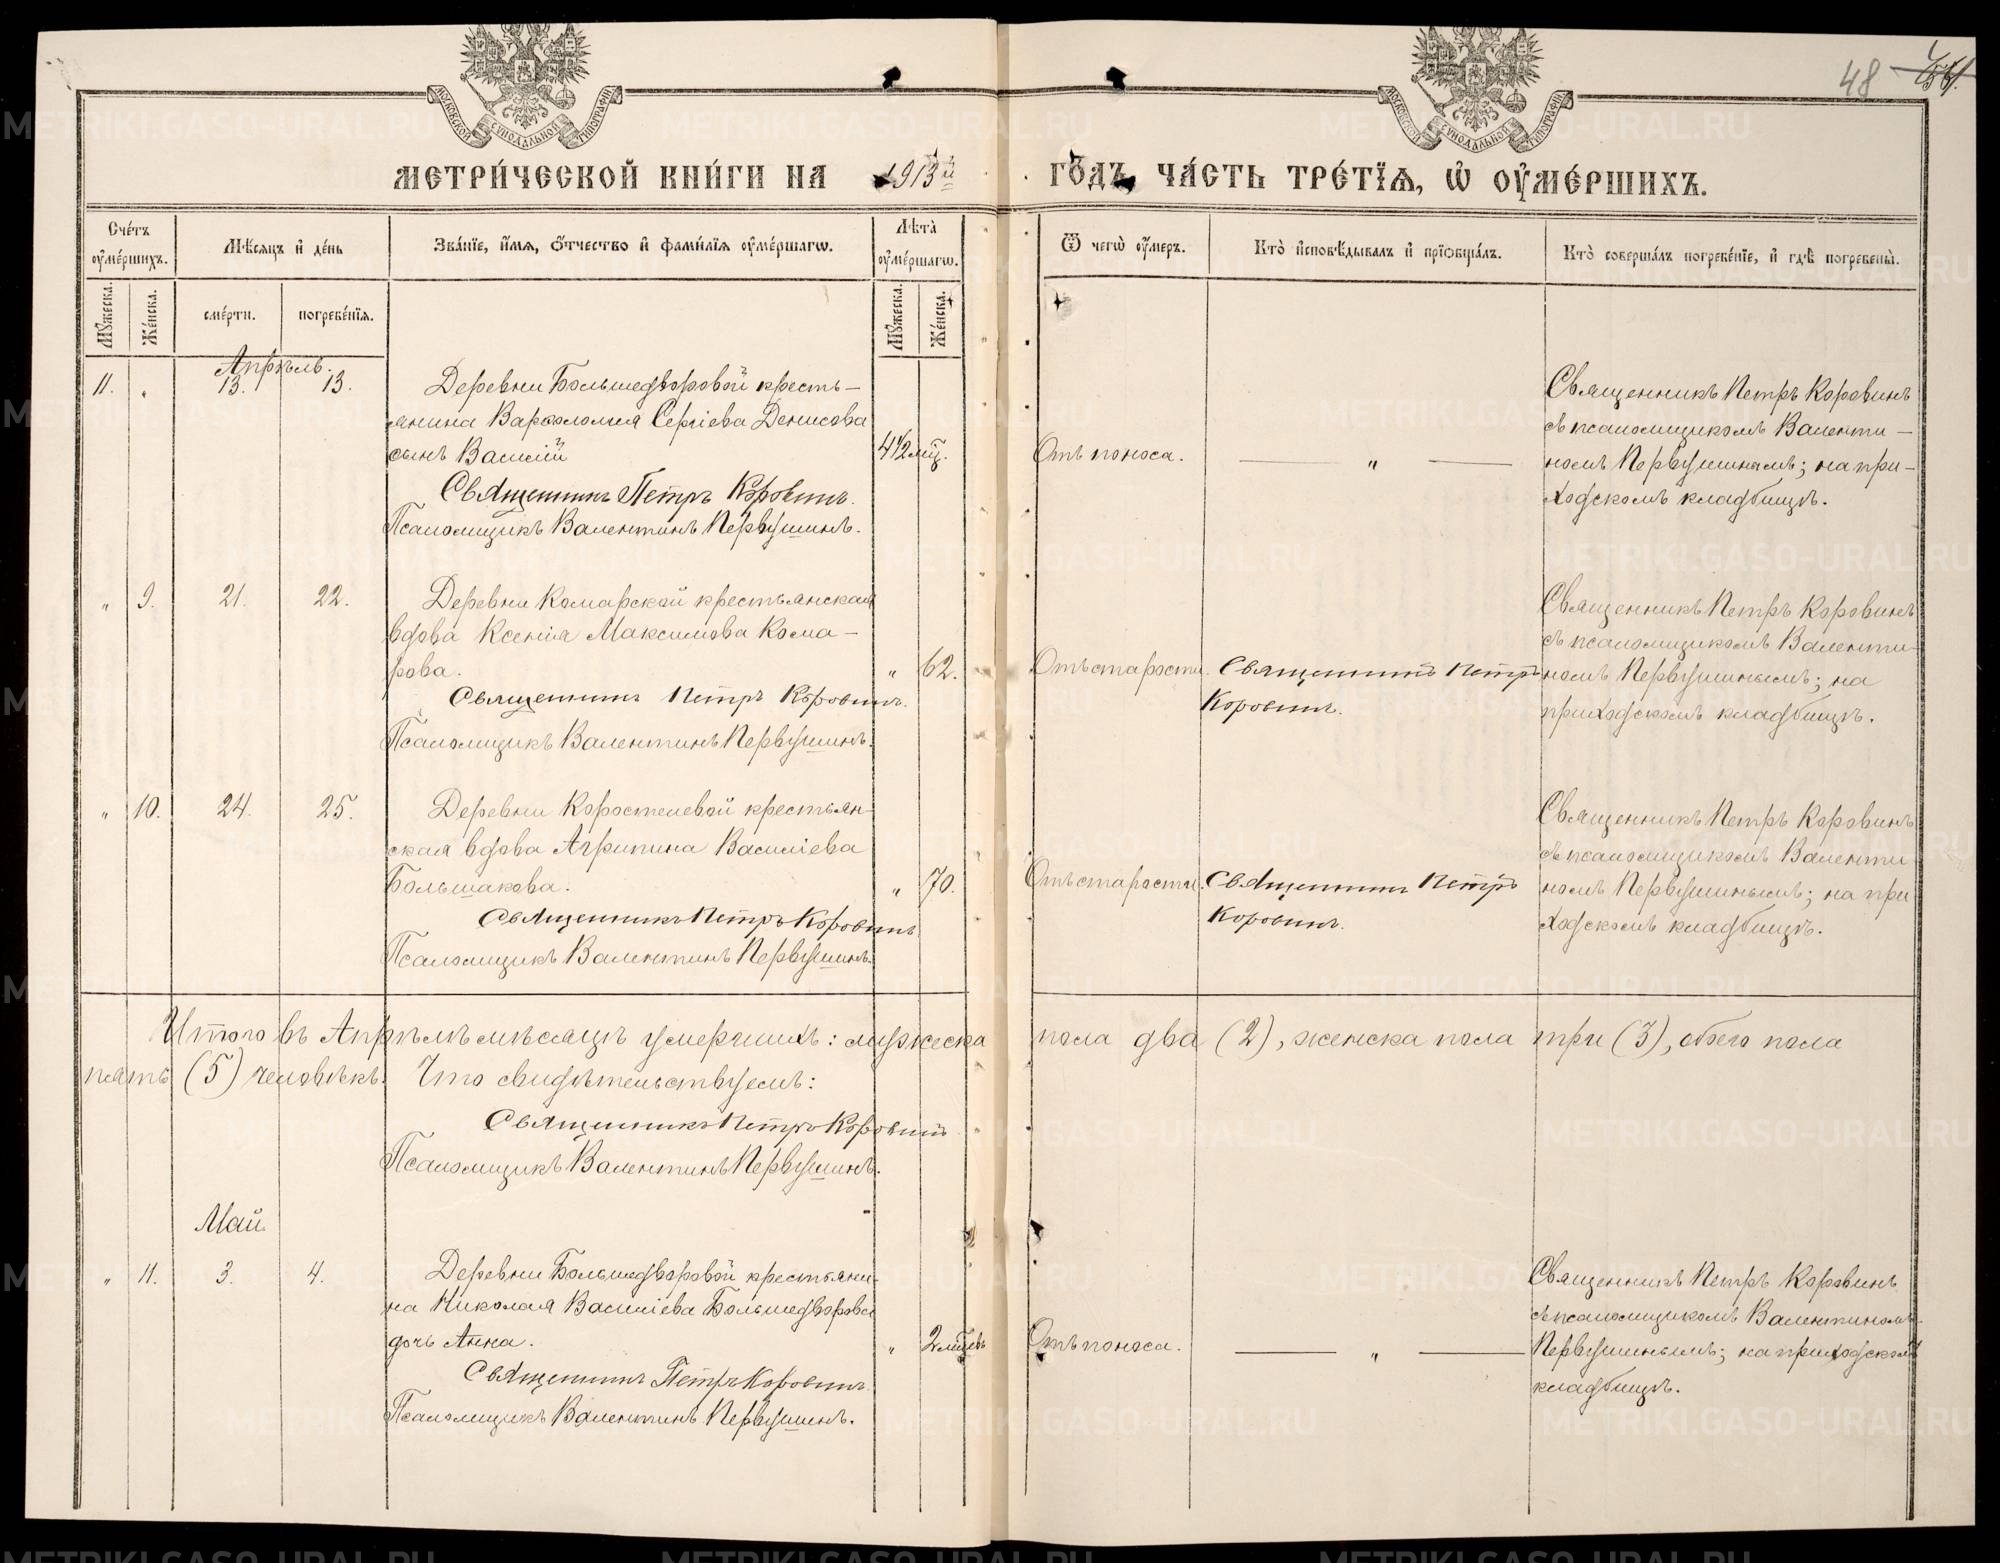 48 561.
МОСКОВСКОЙ СѴНОДАЛЬНОЙ ТИПОГРАФІИ
МОСКОВСКОЙ СѴНОДАЛЬНОЙ ТИПОГРАФІИ
МЕТРИ́ЧЕСКОЙ КНИ́ГИ НА 1913й ГО́ДЪ, ЧА́СТЬ ТРЕ́ТЇѦ, Ѡ҆ ОУ҆МЕ́РШИХЪ.
Сче́тъ оу҆ме́ршихъ.
Мѣ́сѧцъ и҆ де́нь
Зва́нїе, и҆́мѧ, ѻ҆́тчество и҆ фами́лїѧ оу҆ме́ршагѡ.
Лѣ́та оу҆ме́ршагѡ.
Ѿ чегѡ̀ оу҆́меръ.
Кто̀ и҆сповѣ́дывалъ и҆ прїѡбща́лъ.
Кто̀ соверша́лъ погребе́нїе, и҆ гдѣ̀ погребены̀.
Мꙋ́жеска. Же́нска. сме́рти. погребе́нїѧ. Мꙋ́жеска. Же́нска.
Апрѣль.
11. „ 13. 13. Деревни Большедворовой кресть-
янина Варѳоломея Сергіева Денисова
сынъ Василій 4½ мц.
Священникъ Петръ Коровинъ.
Псаломщикъ Валентинъ Первушинъ.
Отъ поноса. „
Священникъ Петръ Коровинъ
съ псаломщикомъ Валенти-
номъ Первушинымъ; на при-
ходскомъ кладбищѣ.
„ 9. 21. 22. Деревни Комарской крестьянская
вдова Ксенія Максимова Кома-
рова. „ 62.
Священникъ Петръ Коровинъ.
Псаломщикъ Валентинъ Первушинъ.
Отъ старости. Священникъ Петръ
Коровинъ.
Священникъ Петръ Коровинъ
съ псаломщикомъ Валенти-
номъ Первушинымъ; на
приходскомъ кладбищѣ.
„ 10. 24. 25. Деревни Коростелевой крестьян-
ская вдова Агрипина Василіева
Большакова. „ 70.
Священникъ Петръ Коровинъ
Псаломщикъ Валентинъ Первушинъ.
Отъ старости. Священникъ Петръ
Коровинъ.
Священникъ Петръ Коровинъ
съ псаломщикомъ Валенти
номъ Первушинымъ; на при
ходскомъ кладбищѣ.
Итого въ Апрѣлѣ мѣсяцѣ умершихъ: мужеска пола два (2), женска пола три (3), обоего пола
пять (5) человѣкъ. Что свидѣтельствуемъ:
Священникъ Петръ Коровинъ
Псаломщикъ Валентинъ Первушинъ.
Май
„ 11. 3. 4. Деревни Большедворовой крестьяни-
на Николая Василіева Большедворова
дочь Анна. „ 2 мцевъ
Священникъ Петръ Коровинъ
Псаломщикъ Валентинъ Первушинъ.
Отъ поноса. „
Священникъ Петръ Коровинъ
съ псаломщикомъ Валентиномъ
Первушинымъ; на приходскомъ
кладбищѣ.
METRIKI.GASO-URAL.RU